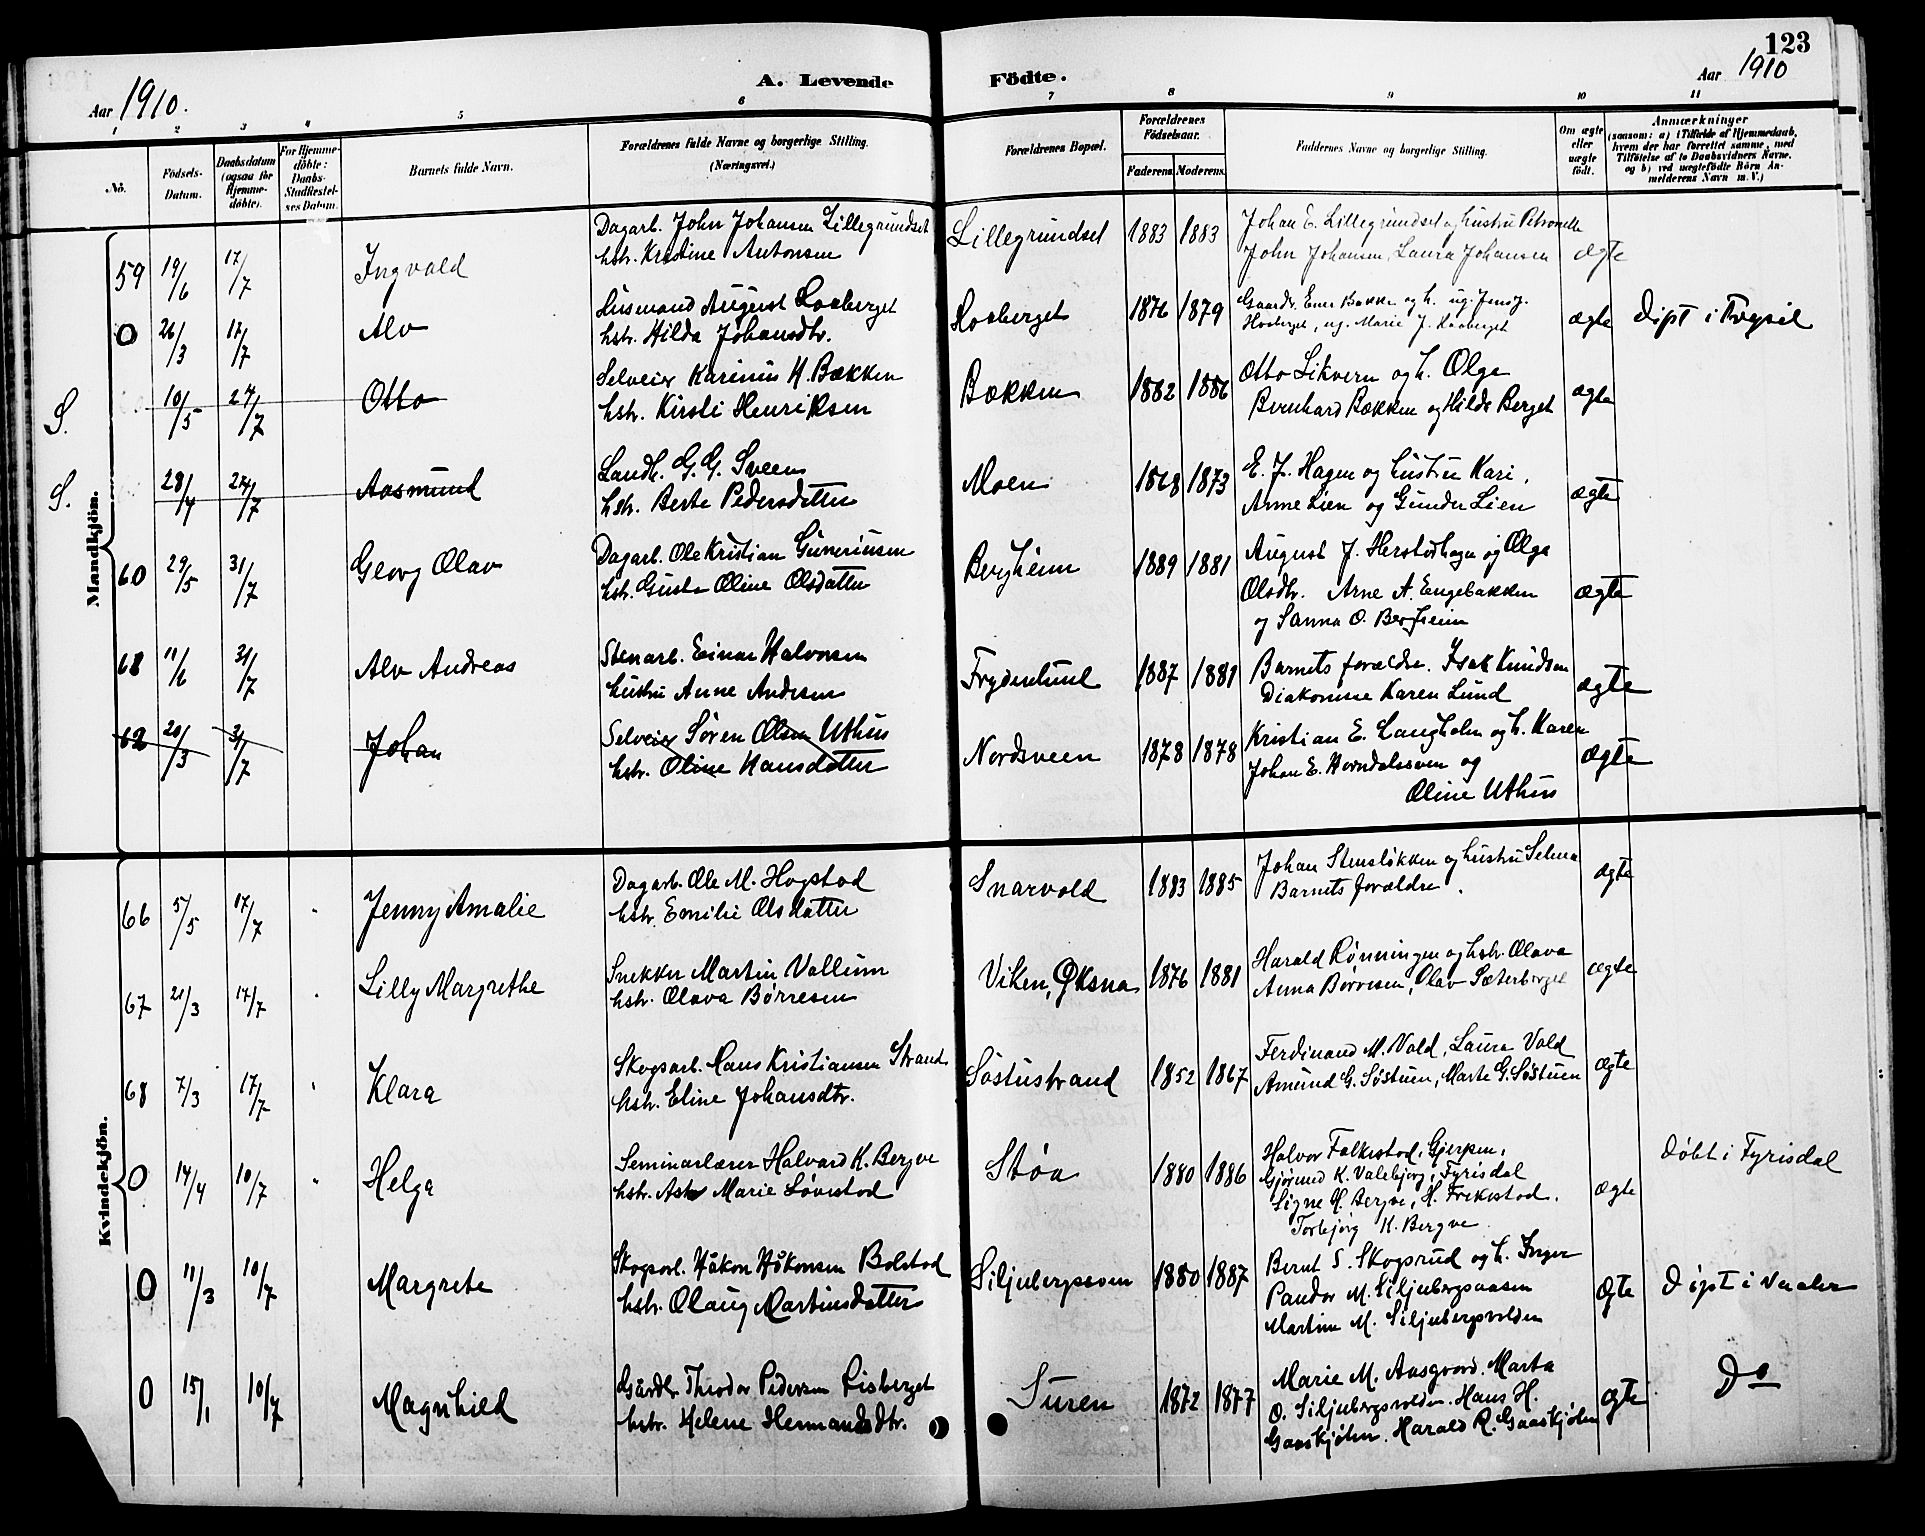 123
Aar 1910.
A. Levende Födte.
Aar 1910
1 2 3 4 5 6 7 8 9 10 11
No.
Födsels-Datum.
Daabsdatum (ogsaa for Hjemme-döbte).
For Hjemme-döbte: Daabs-Stadfæstel-ses Datum.
Barnets fulde Navn.
Forældrenes fulde Navne og borgerlige Stilling. (Næringsvei.)
Forældrenes Bopæl.
Forældrenes Födselsaar.
Faderens. Moderens.
Faddernes Navne og borgerlige Stilling.
Om ægte eller uægte födt.
Anmærkninger
(saasom: a) i Tilfælde af Hjemmedaab, hvem der har forrettet samme, med Tilföielse af to Daabsvidners Navne, og b) ved uægtefödte Börn An-melderens Navn m. V.)
Mandkjön.
59 19/6 17/7 Ingvald
Dagarb. John Johansen Lillegrundset
hstr. Kristine Antonsen
Lillegrundset 1883 1883
Johan E. Lillegrundset og hustru Petronelle
John Johansen, Laura Johansen
ægte
0 26/3 17/7 Alv
Husmand August Haaberget
hstr. Hilda Johansdtr.
Haaberget 1876 1879
Gaardbr. Emer Bakken og h. ug. Jens J.
Haaberget, ug. Marie J. Haaberget
ægte Døpt i Trysil
S. 10/5 24/7 Otto
Selveier Karinius H. Bækken
hstr. Kirsti Henriksen
Bækken 1882 1886
Otto Likvern og h. Olga
Bernhard Bækken og Hilda Berget
ægte
S. 28/4 24/7 Aasmund
Landh. G. G. Sveen
hstr. Berte Pedersdatter
Moen 1868 1873
E. J. Hagen og hustru Kari.
Arne Lien og Gunder Lien
ægte
60 29/5 31/7 Georg Olav
Dagarb. Ole Kristian Guneriusen
hstr. Gusta Oline Olsdatter
Bergheim 1889 1881
August J. Herstadhagen og Olga
Olsdtr. Arne A. Engebakken
og Sanna O. Bergheim
ægte
68 11/6 31/7 Alv Andreas
Stenarb. Einar Halvorsen
hustru Anne Andersen
Frydenlund 1887 1881
Barnets forældre. Isak Knudsen
Diakonisse Karen Lund
ægte
62 20/3 31/7 Johan
Selveier Søren Olsen Uthus
hstr. Oline Hansdatter
Nordsveen 1878 1878
Kristian E. Langholen og h. Karen
Johan E. Horndalssveen og
Oline Uthus
ægte
Kvindekjön.
66 5/5 17/7 Jenny Amalie
Dagarb. Ole M. Hogstad
hstr. Emilie Olsdatter
Snarvold 1883 1885
Johan Stensløkken og hustru Selma
Barnets forældre.
ægte
67 21/3 17/7 Lilly Margrethe
Snekker Martin Vallum
hstr. Olava Børresen
Viken, Øksna 1876 1881
Harald Rønningen og hstr. Olava
Anna Børresen, Olav Sæterberget
ægte
68 7/3 17/7 Klara
Skogsarb. Hans Kristiansen Strand
hstr. Eline Johansdtr.
Søstustrand 1852 1867
Ferdinand M. Vold, Laura Vold
Amund G. Søstuen, Marte G. Søstuen
ægte
0 14/4 10/7 Helga
Seminarlærer Halvard K. Bergve
hstr. Marie Løvestad
Støa 1880 1886
Halvor Falkestad, Gjerpen,
Gjørund K. Valebjorg, Fyrisdal
Signe H. Bergve, H. Frekestad.
Torbjørg K. Bergve
ægte Døbt i Fyrisdal
0 11/3 10/7 Margrete
Skogsarb. Håkon Håkonsen Bolstad
hstr. Olaug Martinsdatter
Siljubergsaasen 1880 1887
Bernt S. Skogsrud og h. Inger
Pandor M. Siljubergsaasen
Martin M. Siljubergsvolden
ægte Døpt i Vaaler
0 15/1 10/7 Magnhild
Gårdbr. Theodor Pedersen Risberget
hstr. Helene Hermandsdtr.
Suren 1872 1877
Marie M. Aasgaard. Marta
O. Siljubergsvolden. Hans H.
Gaaskjølen. Harald R. Gaaskjølen
ægte Do